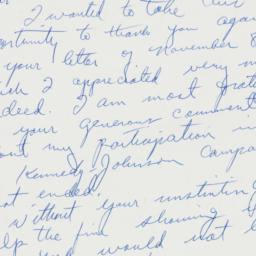 I wanted to take this
opportunity to thank you again
your letter of November 8
I appreciated very m
deed. I am most grate
your generous comments
out my participation in
Kennedy-Johnson campa
st ended.
Without your unstinting
lp the fine showing
would not b